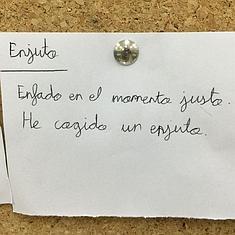 Enjuto
Enfado en el momento justo.
He cogido un enjuto.